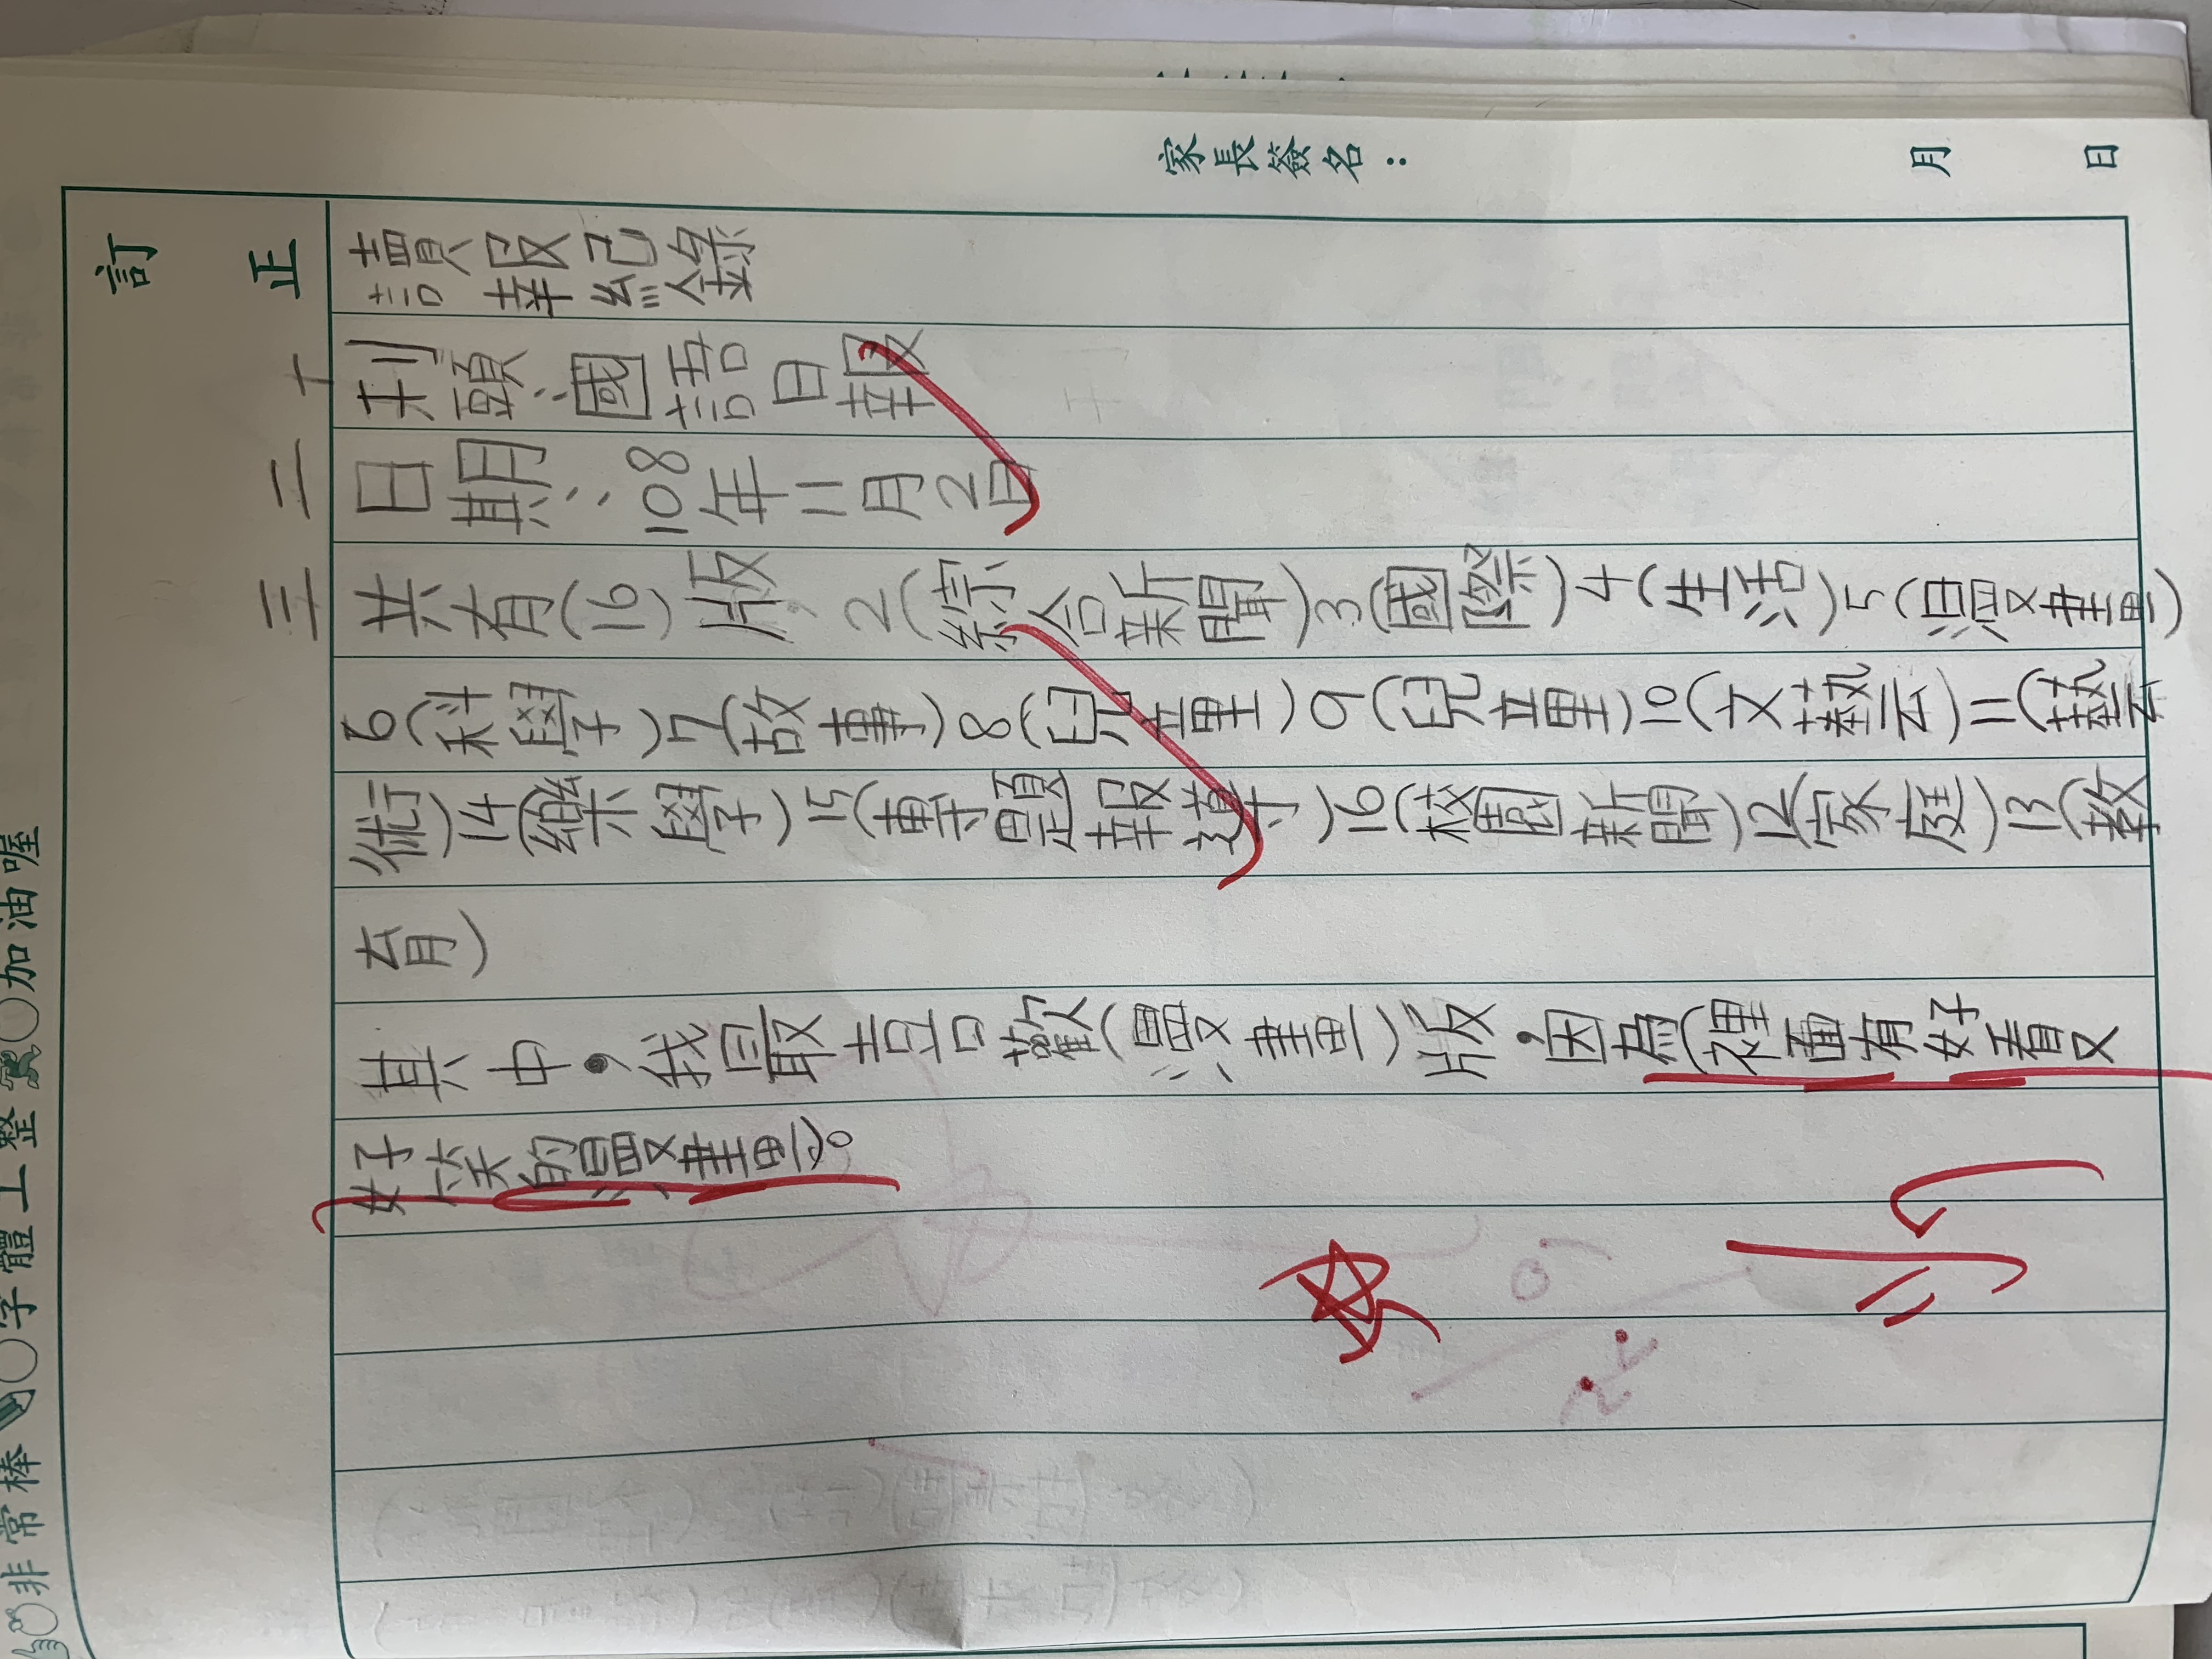 家長簽名： 月 日
訂正
讀報紀錄
一 刊頭：國語日報
二 日期：108年11月2日
三 共有(16)版，2(綜合新聞)3(國際)4(生活)5(漫畫)
6(科學)7(故事)8(兒童)9(兒童)10(文藝)11(藝
術)14(樂學)15(專題報導)16(校園新聞)12(家庭)13(教
育)
其中，我最喜歡(漫畫)版，因為(裡面有好看又
好笑的漫畫)。
非常棒 字體工整 加油喔